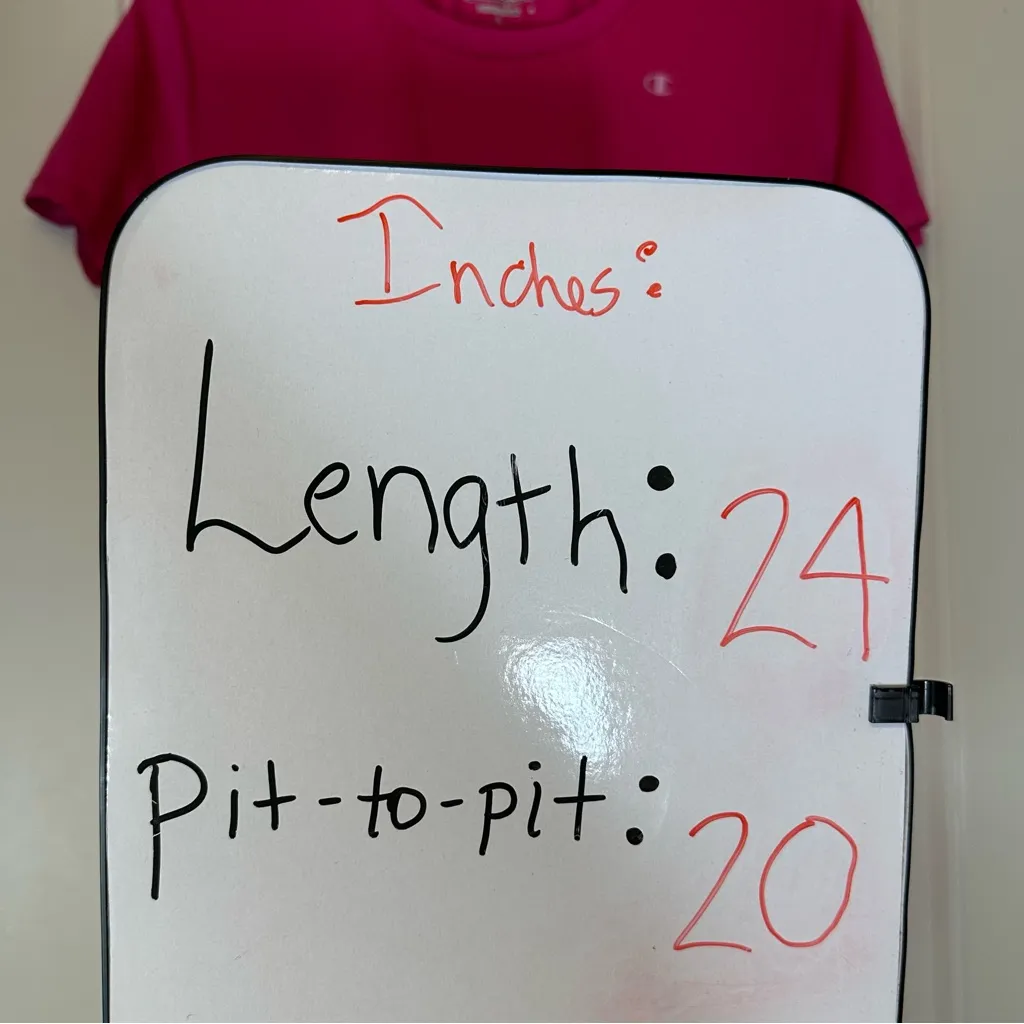 Inches:
Length: 24
Pit-to-pit: 20